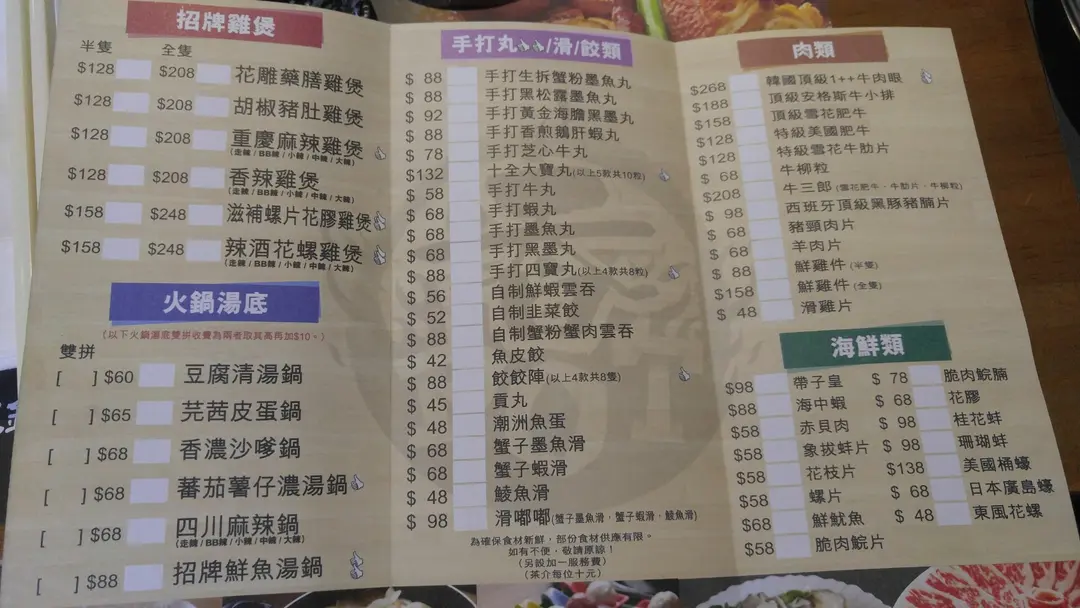 招牌雞煲
半隻 全隻
$128 $208 花雕藥膳雞煲
$128 $208 胡椒豬肚雞煲
$128 $208 重慶麻辣雞煲
(走辣 / BB辣 / 小辣 / 中辣 / 大辣)
$128 $208 香辣雞煲
(走辣 / BB辣 / 小辣 / 中辣 / 大辣)
$158 $248 滋補螺片花膠雞煲
$158 $248 辣酒花螺雞煲
(走辣 / BB辣 / 小辣 / 中辣 / 大辣)
火鍋湯底
(以下火鍋湯底雙拼收費為兩者取其高再加$10。)
雙拼
[ ] $60 豆腐清湯鍋
[ ] $65 芫茜皮蛋鍋
[ ] $68 香濃沙嗲鍋
[ ] $68 蕃茄薯仔濃湯鍋
[ ] $68 四川麻辣鍋
(走辣 / BB辣 / 小辣 / 中辣 / 大辣)
[ ] $88 招牌鮮魚湯鍋
手打丸/滑/餃類
$ 88 手打生拆蟹粉墨魚丸
$ 88 手打黑松露墨魚丸
$ 92 手打黃金海膽黑墨丸
$ 88 手打香煎鵝肝蝦丸
$ 78 手打芝心牛丸
$132 十全大寶丸(以上5款共10粒)
$ 58 手打牛丸
$ 68 手打蝦丸
$ 68 手打墨魚丸
$ 68 手打黑墨丸
$ 88 手打四寶丸(以上4款共8粒)
$ 56 自制鮮蝦雲吞
$ 52 自制韭菜餃
$ 88 自制蟹粉蟹肉雲吞
$ 42 魚皮餃
$ 88 餃餃陣(以上4款共8隻)
$ 45 貢丸
$ 48 潮洲魚蛋
$ 68 蟹子墨魚滑
$ 68 蟹子蝦滑
$ 48 鯪魚滑
$ 98 滑嘟嘟(蟹子墨魚滑，蟹子蝦滑，鯪魚滑)
為確保食材新鮮，部份食材供應有限。
如有不便，敬請原諒！
(另設加一服務費)
(茶介每位十元)
肉類
$268 韓國頂級1++牛肉眼
$188 頂級安格斯牛小排
$158 頂級雪花肥牛
$128 特級美國肥牛
$128 特級雪花牛肋片
$ 68 牛柳粒
$208 牛三郎(雪花肥牛，牛肋片，牛柳粒)
$ 98 西班牙頂級黑豚豬腩片
$ 68 豬頸肉片
$ 68 羊肉片
$ 88 鮮雞件(半隻)
$158 鮮雞件(全隻)
$ 48 滑雞片
海鮮類
$98 帶子皇
$88 海中蝦
$58 赤貝肉
$58 象拔蚌片
$58 花枝片
$58 螺片
$68 鮮魷魚
$58 脆肉鯇片
$ 78 脆肉鯇腩
$ 68 花膠
$ 98 桂花蚌
$ 98 珊瑚蚌
$138 美國桶蠔
$ 68 日本廣島蠔
$ 48 東風花螺